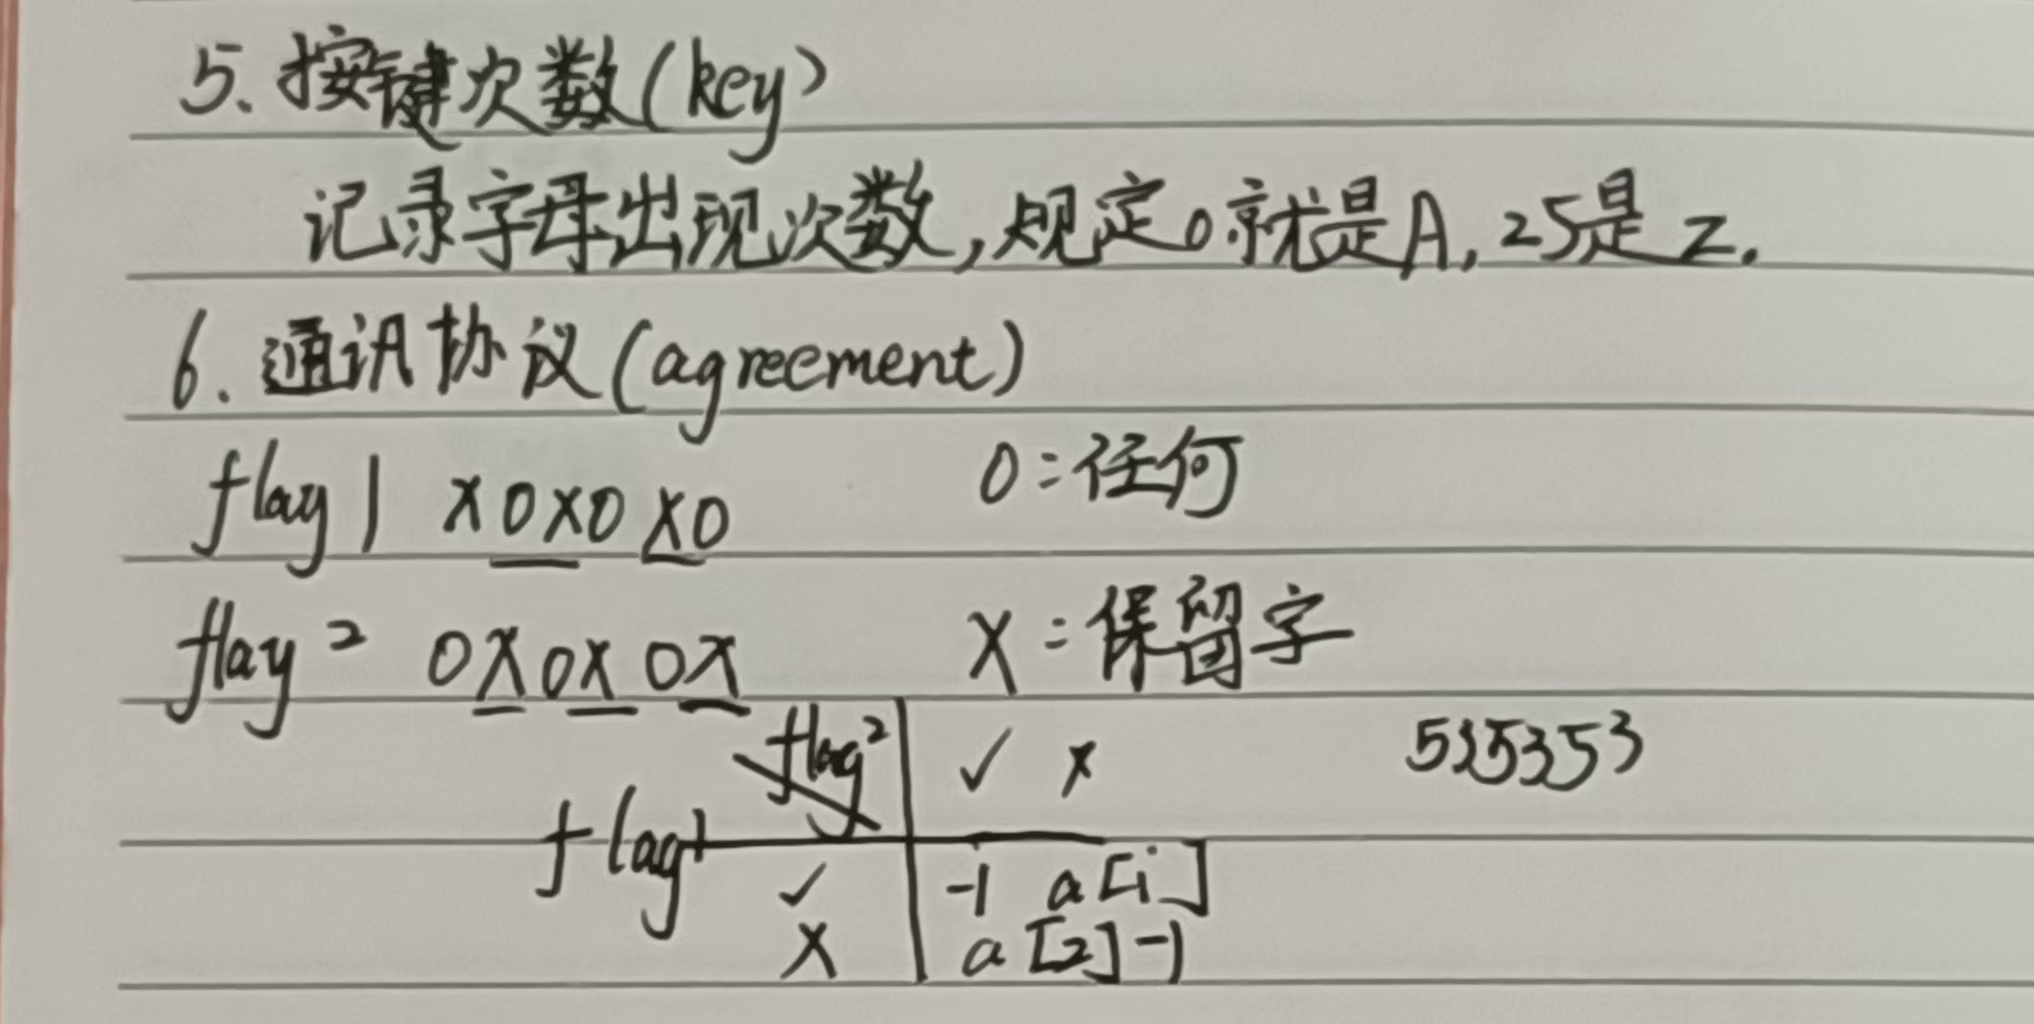 5. 按键次数(key)
记录字母出现次数,规定0就是A,25是Z.
6. 通讯协议(agreement)
flag1 x0x0x0 0:任何
flag2 0x0x0x X:保留字
flag2 ✓ x 535353
flag1
✓ -1 a[i]
X a[2] -1